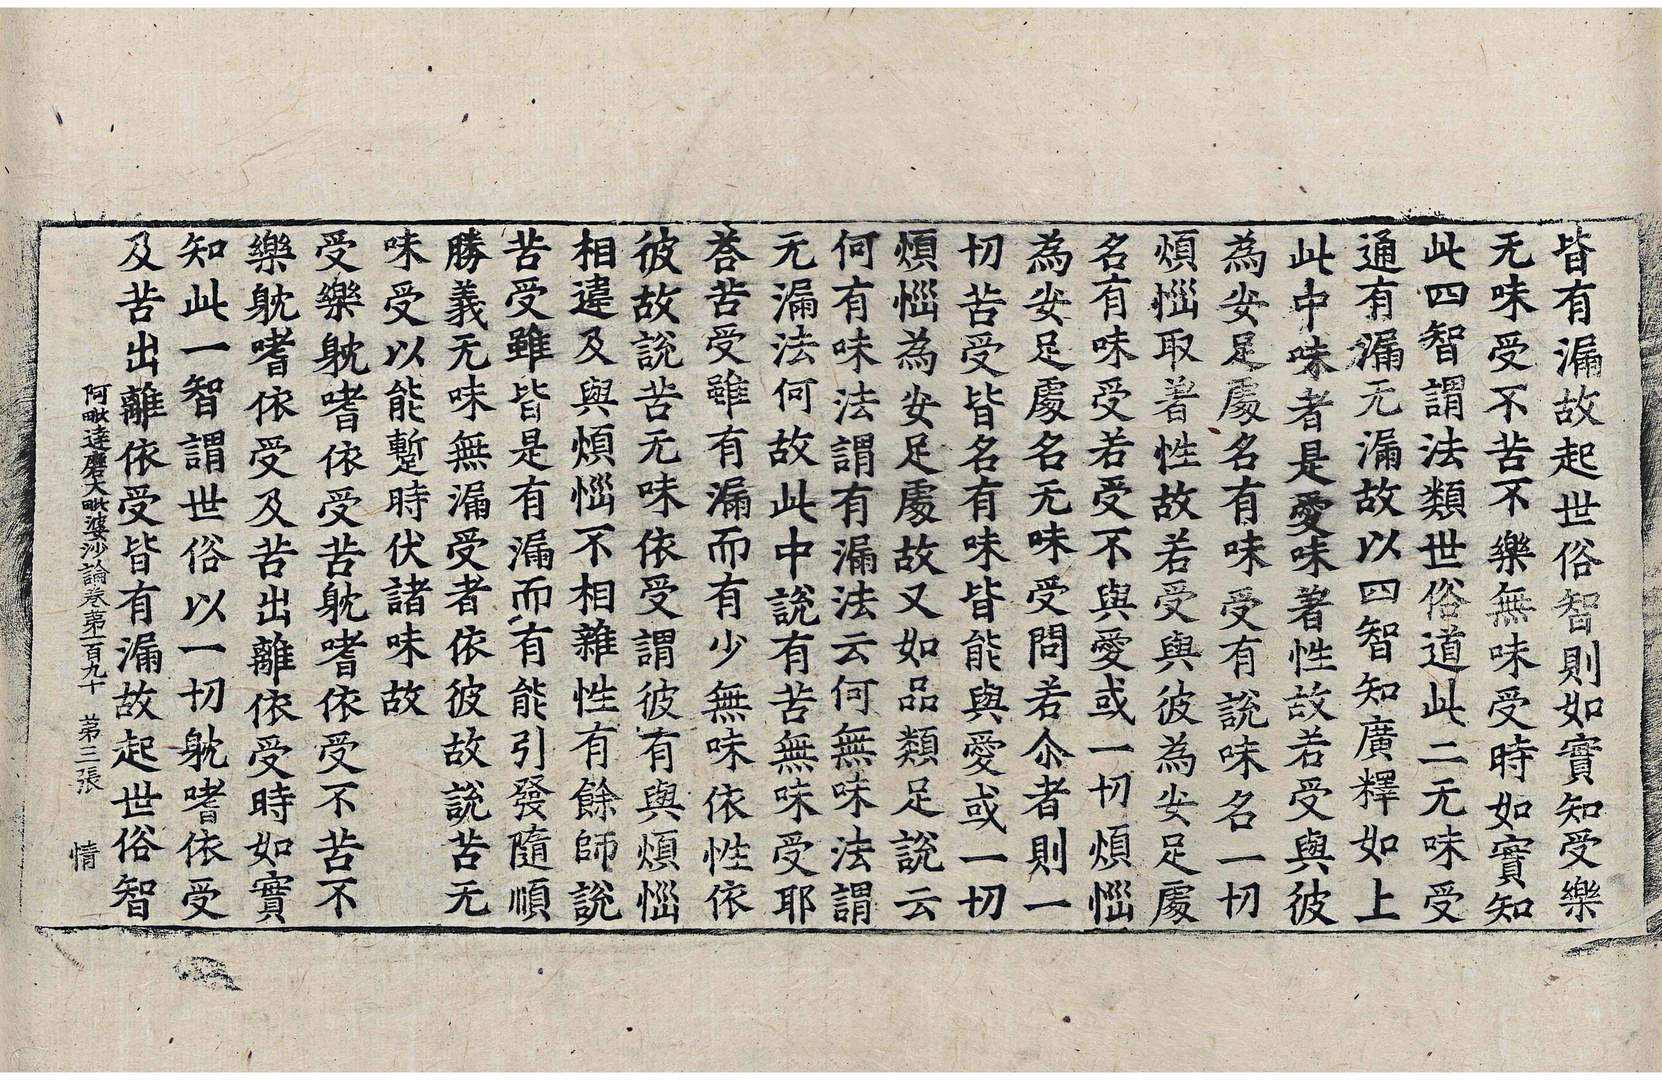 皆有漏故起世俗智則如實知受樂
无味受不苦不樂無味受時如實知
此四智謂法類世俗道此二无味受
通有漏无漏故以四智知廣釋如上
此中味者是愛味著性故若受與彼
為安足處名有味受有說味名一切
煩惱取著性故若受與彼為安足處
名有味受若受不與愛或一切煩惱
為安足處名无味受問若尒者則一
切苦受皆名有味皆能與愛或一切
煩惱為安足處故又如品類足說云
何有味法謂有漏法云何無味法謂
无漏法何故此中說有苦無味受耶
荅苦受雖有漏而有少無味依性依
彼故說苦无味依受謂彼有與煩惱
相違及與煩惱不相雜性有餘師說
苦受雖皆是有漏而有能引發隨順
勝義无味無漏受者依彼故說苦无
味受以能蹔時伏諸味故
受樂躭嗜依受苦躭嗜依受不苦不
樂躭嗜依受及苦出離依受時如實
知此一智謂世俗以一切躭嗜依受
及苦出離依受皆有漏故起世俗智
阿毗達磨大毗婆沙論卷第一百九十　第三張　情